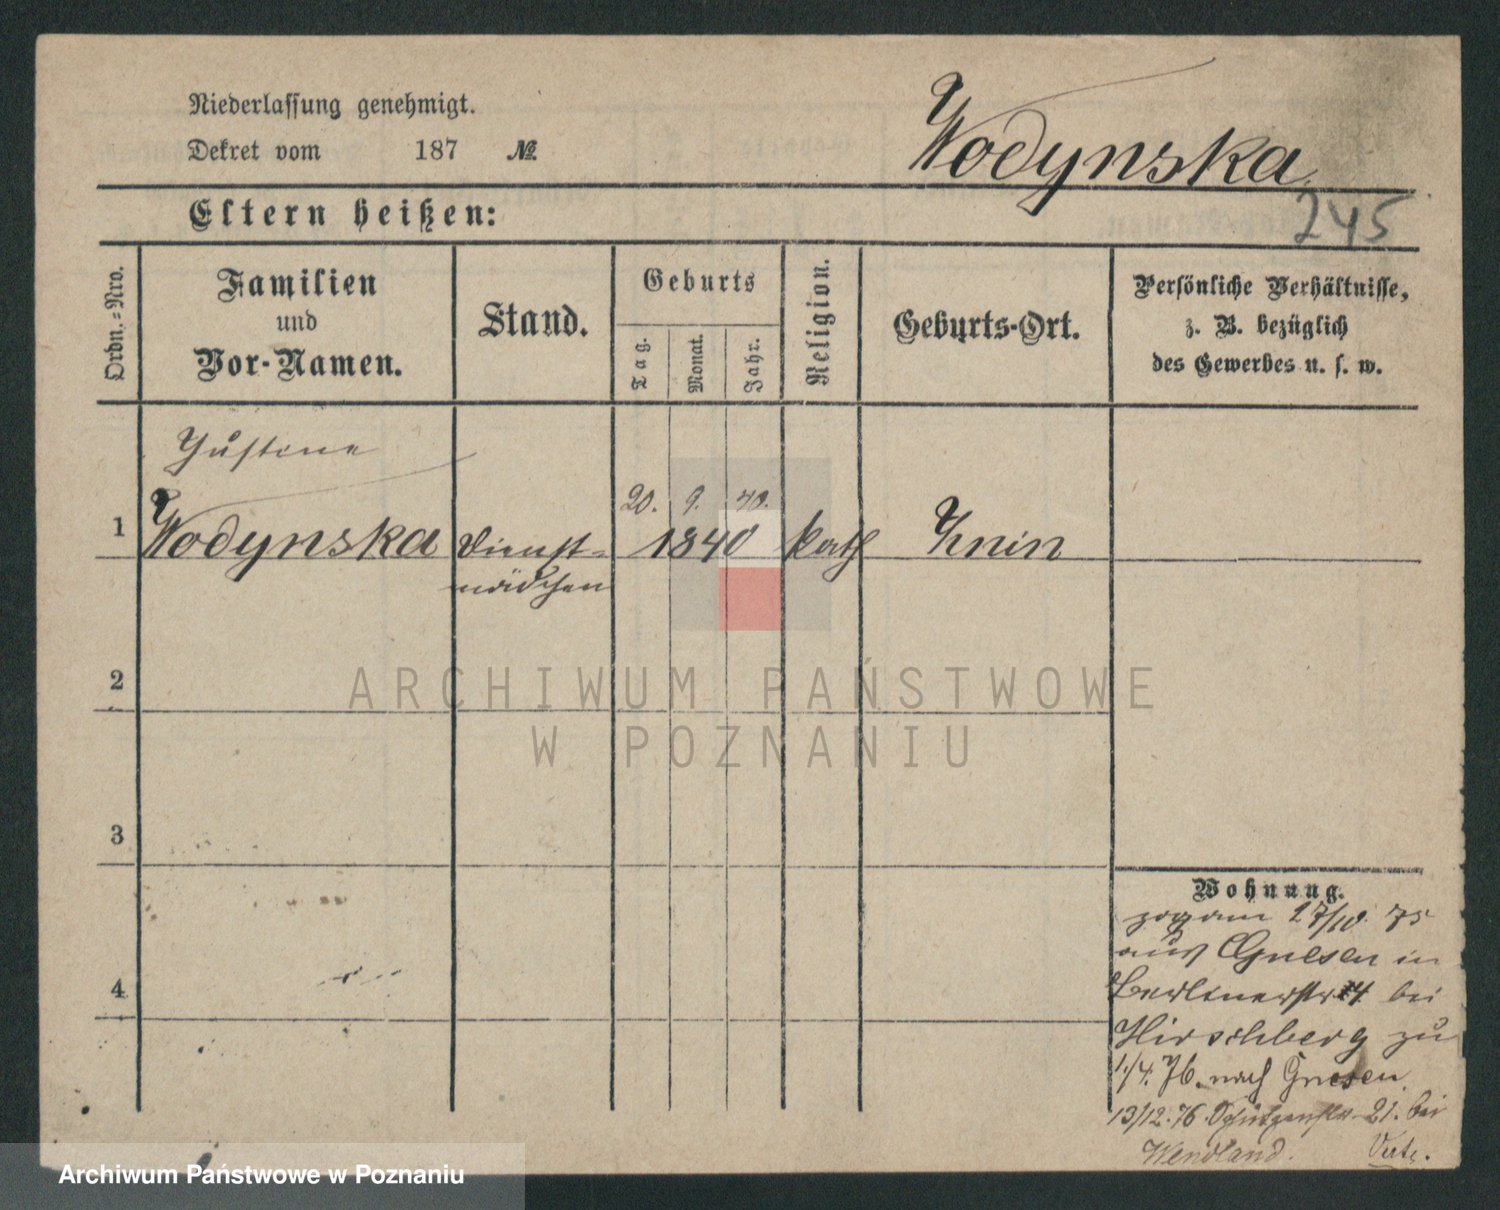 Niederlassung genehmigt.
Dekret vom 187 №
Wodynska
245
Eltern heißen:
Ordn.-Nro.
Familien
und
Vor-Namen.
Stand.
Geburts
Tag.
Monat.
Jahr.
Religion.
Geburts-Ort.
Persönliche Verhältnisse,
z. B. bezüglich
des Gewerbes u. s. w.
Justine
20. 9. 40.
1 Wodynska Dienst- 1840 kath Znin
mädchen
2
ARCHIWUM PAŃSTWOWE
W POZNANIU
3
Wohnung.
zog am 27/10. 75
aus Gnesen in
Berlinerstr 14 bei
4
Hirschberg zu
1./4. 76. nach Gnesen
13/12. 76. Schützenstr. 21. bei
Wendland. Vert.
Archiwum Państwowe w Poznaniu